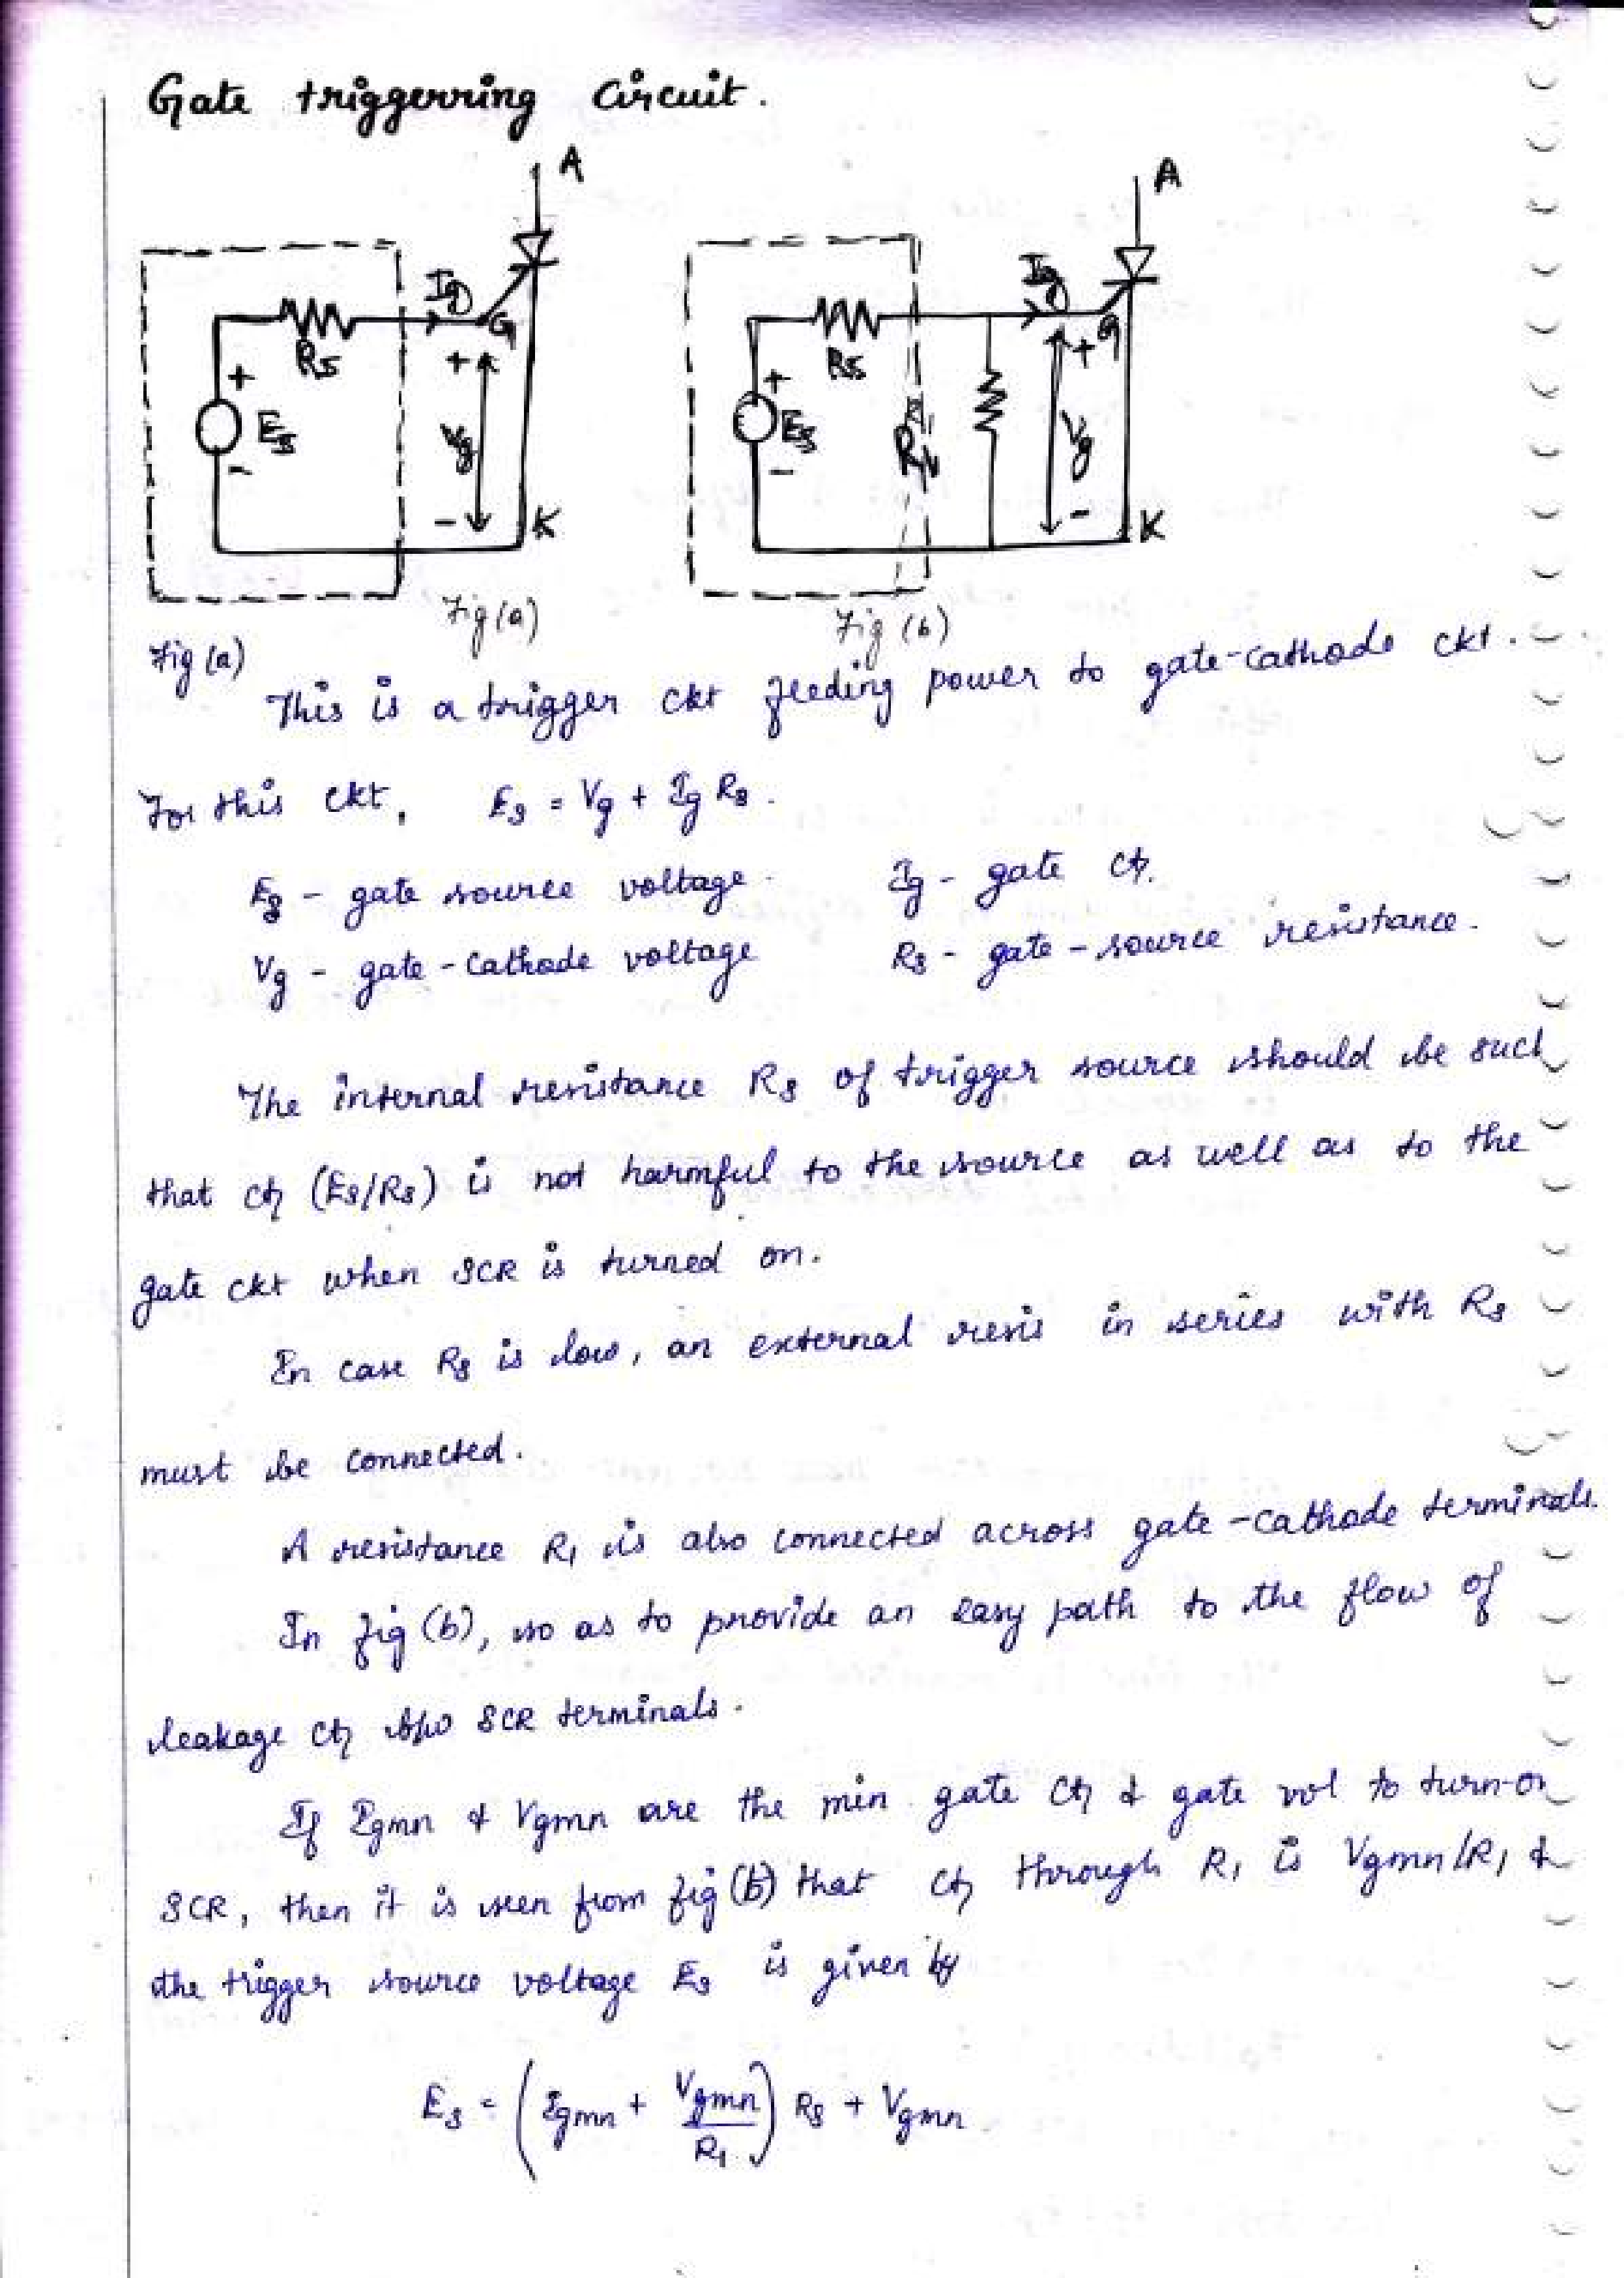 Gate triggerring circuit.
A
A
Ig
Ig
G
G
Rs
Rs
+
+
+
+
Es
Es
Vg
R1
Vg
-
-
-
-
K
K
Fig (a)
Fig (b)
Fig (a)
This is a trigger ckt feeding power to gate-cathode ckt.
For this ckt, Es = Vg + Ig Rs.
Es - gate source voltage. Ig - gate ct.
Vg - gate-cathode voltage Rs - gate-source resistance.
The internal resistance Rs of trigger source should be such
that ct (Es/Rs) is not harmful to the source as well as to the
gate ckt when SCR is turned on.
In case Rs is low, an external resis in series with Rs
must be connected.
A resistance R1 is also connected across gate-cathode terminals.
In fig (b), so as to provide an easy path to the flow of
leakage ct b/w SCR terminals.
If Igmn & Vgmn are the min gate ct & gate vol to turn-on
SCR, then it is seen from fig (b) that ct through R1 is Vgmn/R1 &
the trigger source voltage Es is given by
Es = (Igmn + Vgmn/R1) Rs + Vgmn